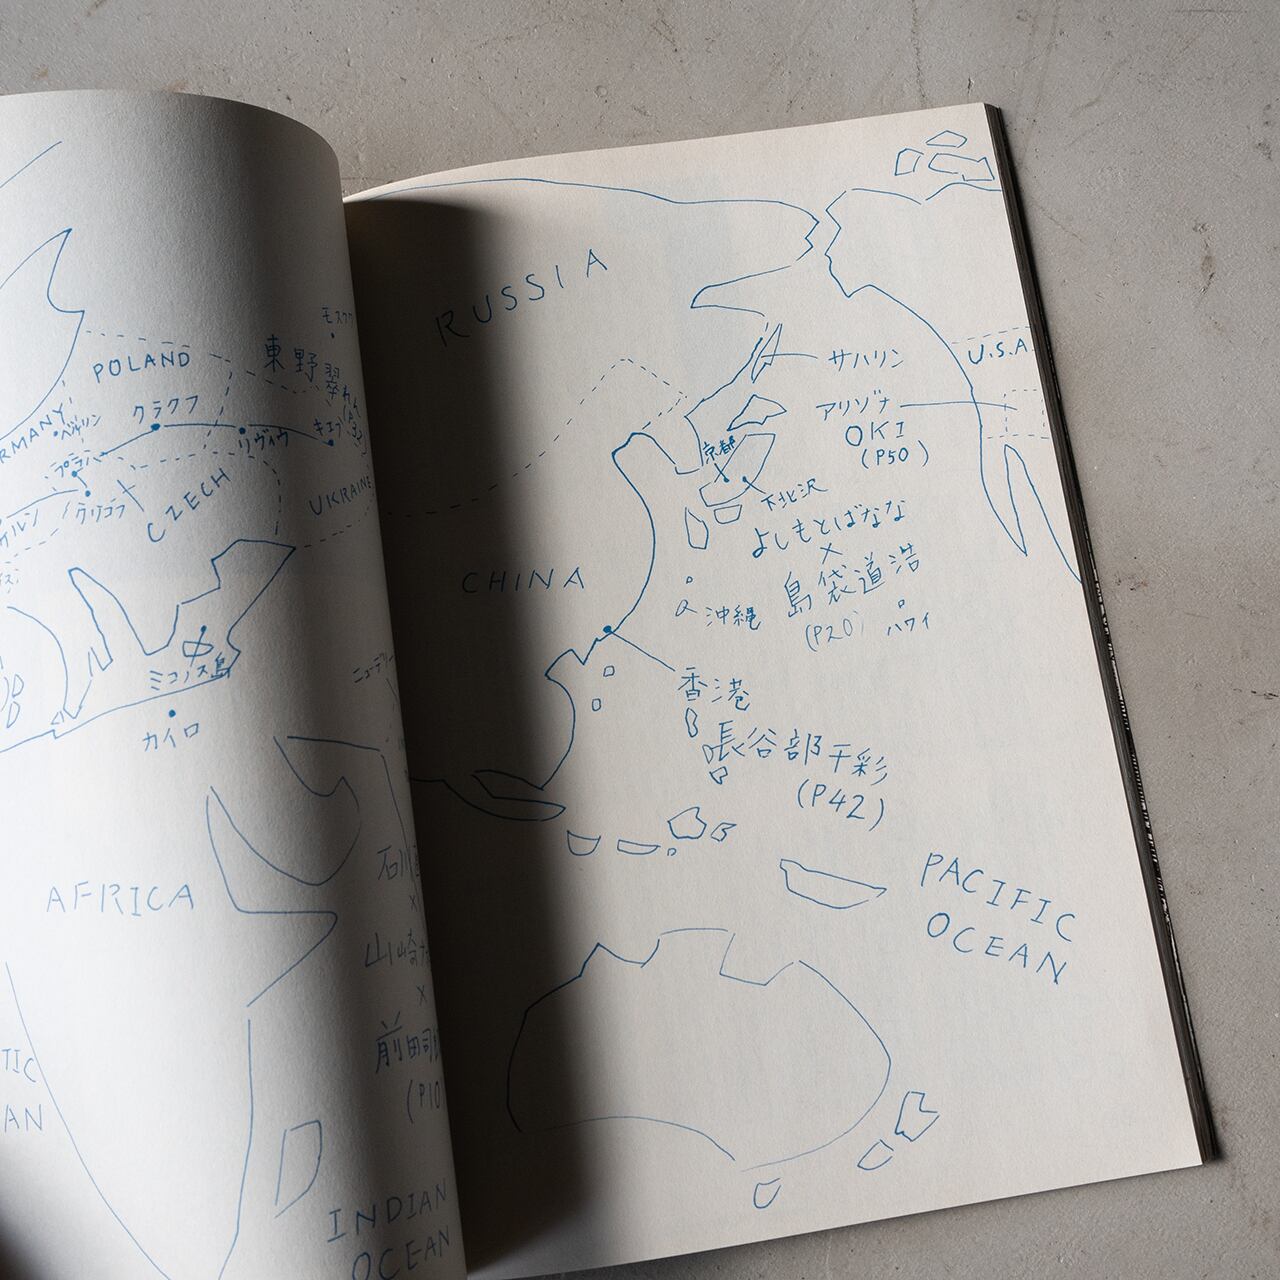 モスクワ
POLAND
東野
翠れん
クラクフ
ベルリン
プラハ
リヴィウ
キエフ
クリコフ
CZECH
UKRAINE
ケルン
ミコノス島
カイロ
ニューデリー
AFRICA
石川
×
山崎
×
前田司
(P10
TIC
AN
INDIAN
OCEAN
RUSSIA
サハリン
U.S.A
アリゾナ
OKI
(P50)
京都
下北沢
よしもとばなな
×
島袋道浩
(P20)
CHINA
沖縄
ハワイ
香港
長谷部千彩
(P42)
PACIFIC
OCEAN